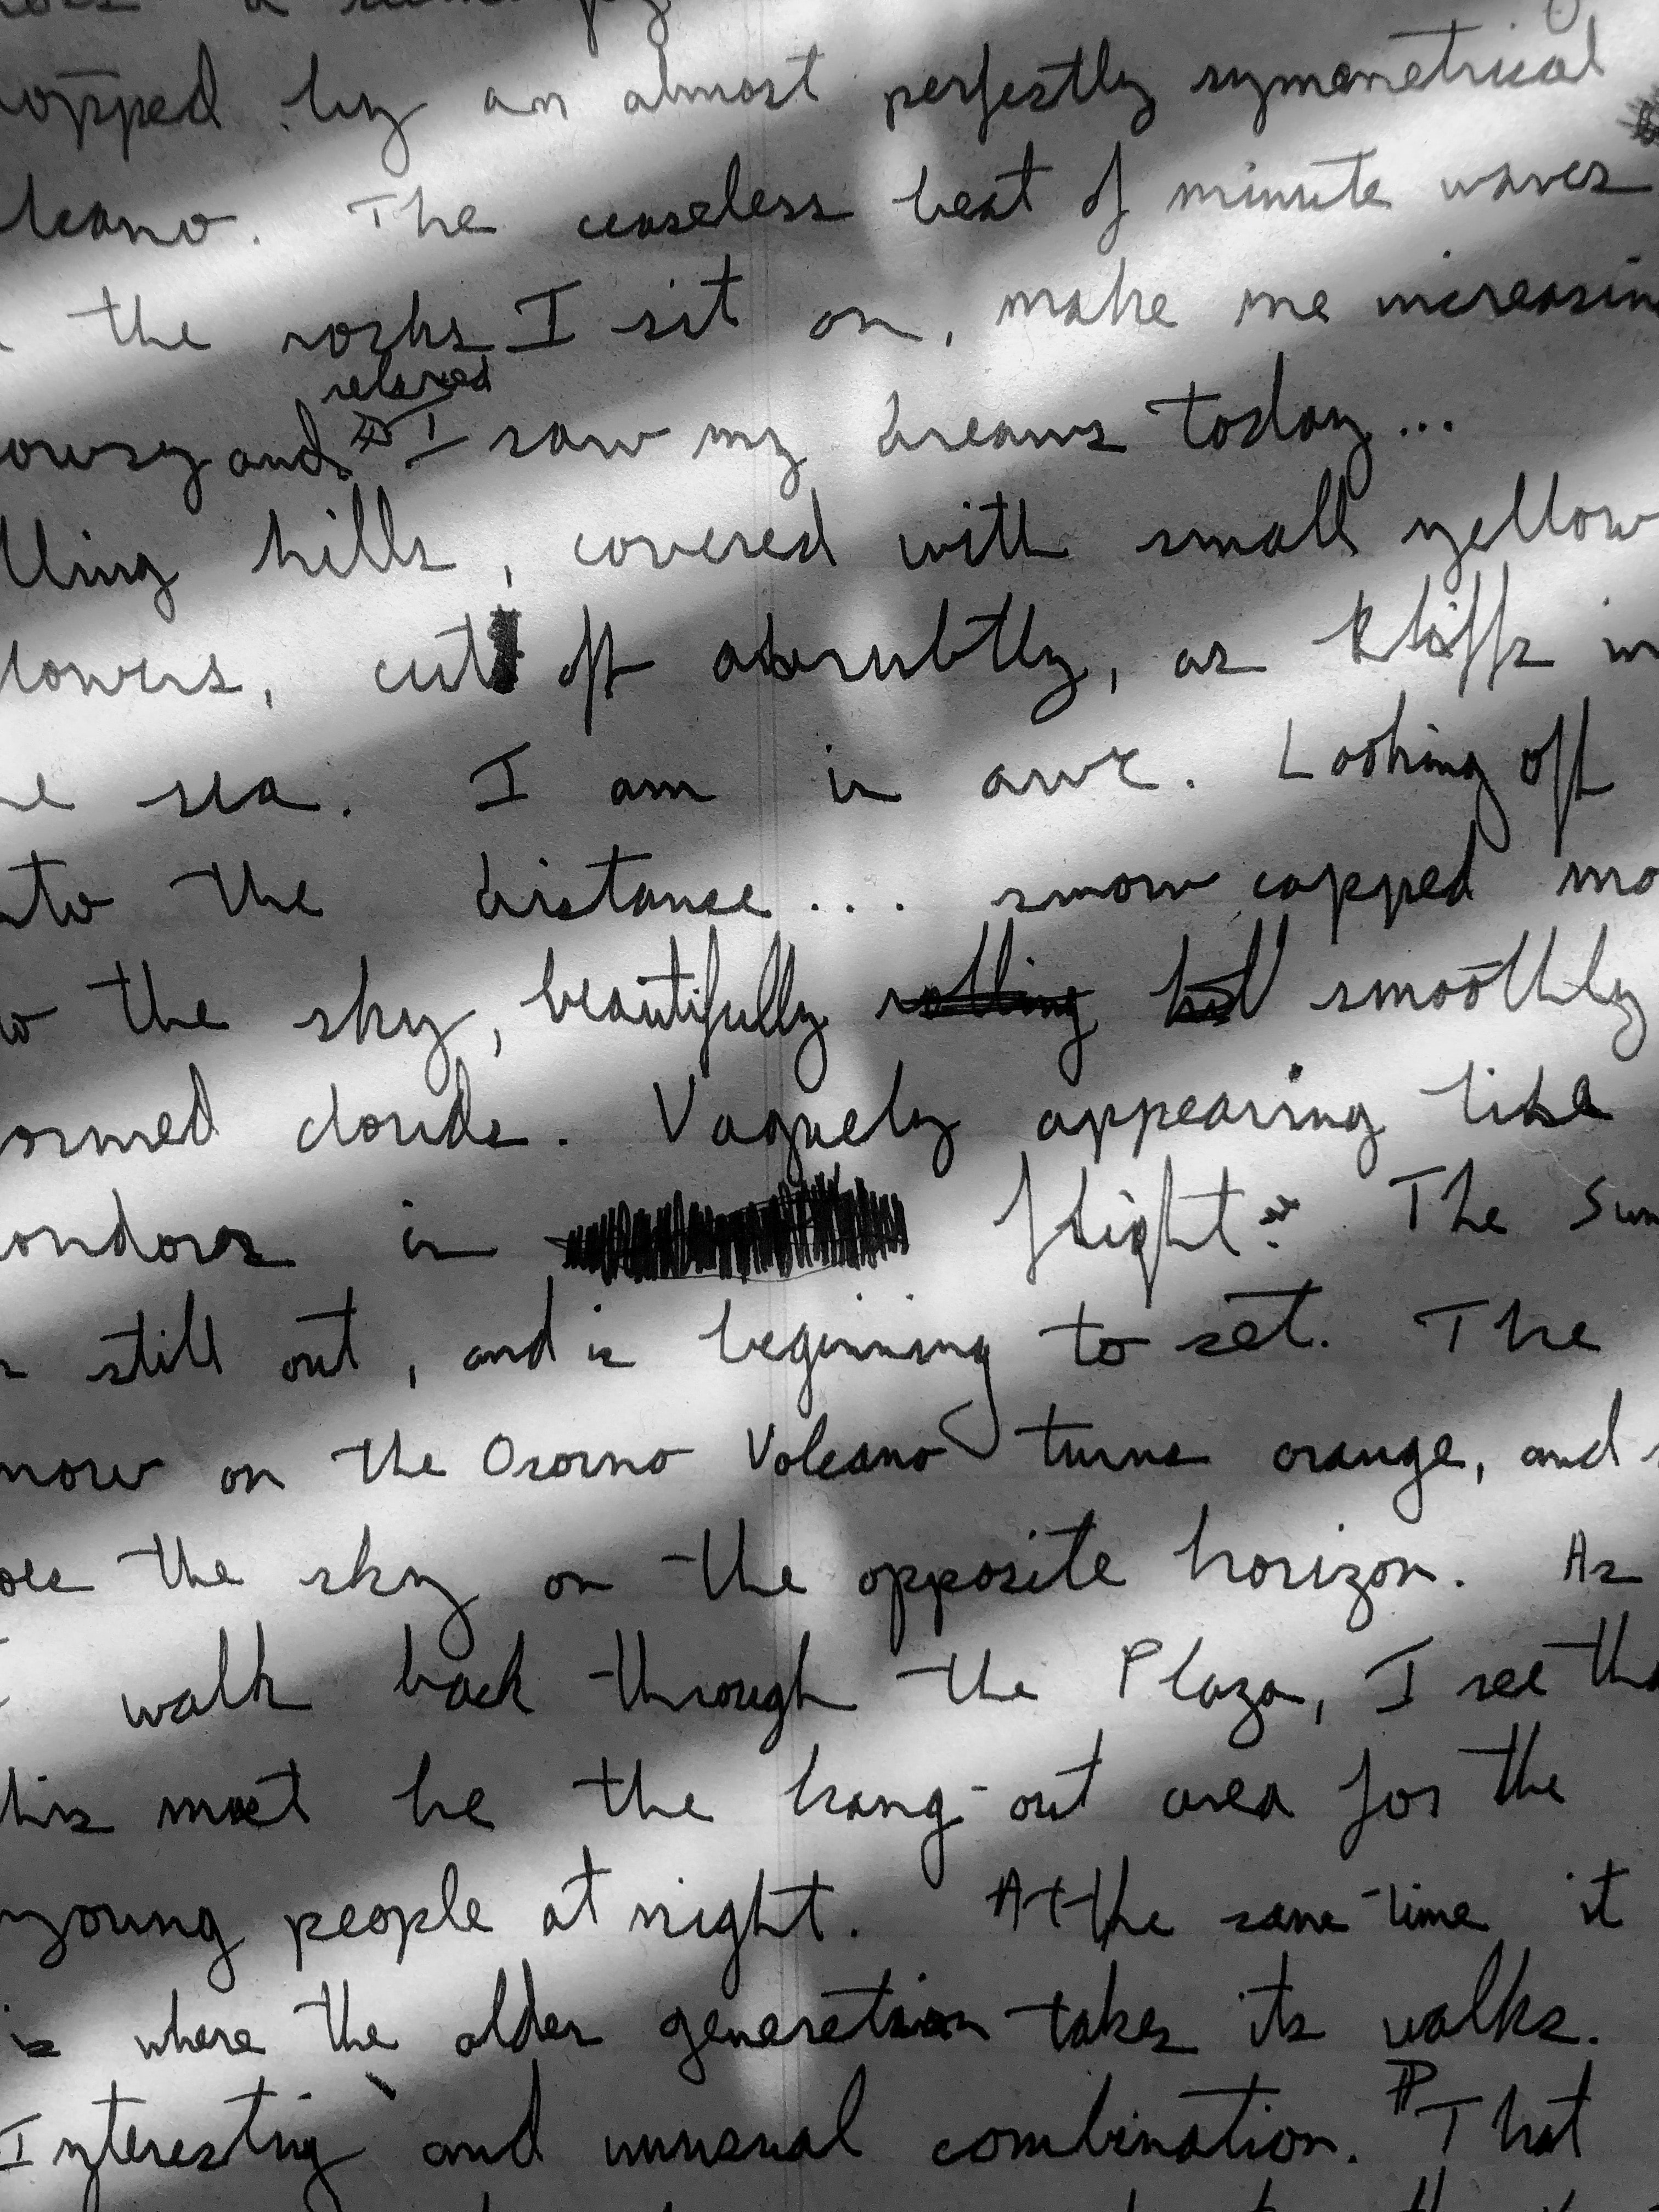 opped by an almost perfectly symmetrical
lcano. The ceaseless beat of minute waves
the rocks I sit on, make me increasin
relaxed
owsy and I saw my dreams today...
lling hills, covered with small yellow
lowers, cut off abrubtly, as kliffs in
he sea. I am in awe. Looking off
nto the distance... snow capped mo
o the sky, beautifully rolling hill smoothly
ormed clouds. Vaguely appearing like
ondors in flight. The Sun
still out, and is beginning to set. The
now on the Osorno Volcano turns orange, and s
oes the sky on the opposite horizon. As
I walk back through the Plaza, I see tha
his must be the hang-out area for the
young people at night. At the same time it
is where the older generation takes its walks.
Interesting and unusual combination. ¶ That